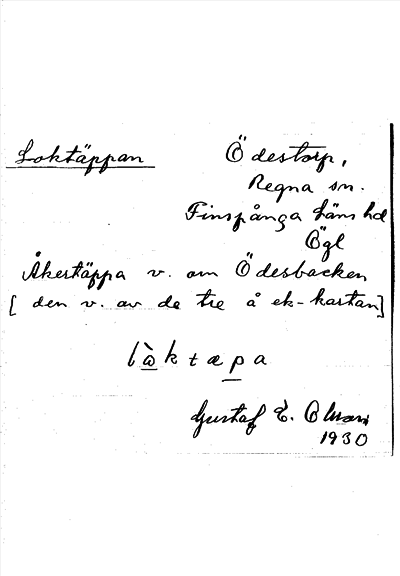 Loktäppan
Ödestorp,
Regna sn.
Finspånga läns hd
Ögl
Åkertäppa v. om Ödesbacken
[den v. av de tre å ek-kartan]
lὼktæpa
Gustaf E. Olsson
1930